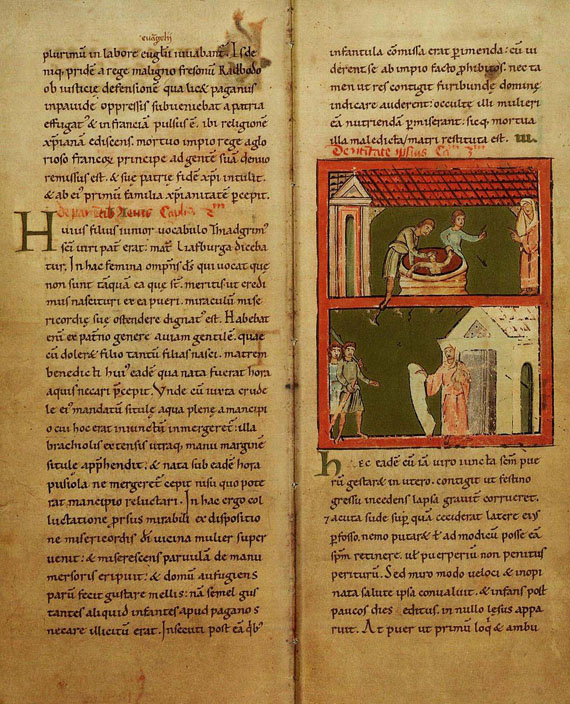 euangelii
plurimū in labore euglii iuuabant. Is de
niq; pridē a rege maligno fresonū Radbodo
ob iusticiē defensionē qua lic& paganus
inpauidē oppressis subueniebat a patria
effugat' & in franciā pulsus ē. ibi religionē
xpianā ediscens. mortuo impio rege a glo
rioso francoꝝ principe ad gentē suā denuo
remissus est. & suę patrię fidē xpi intulit.
& ab ei' primū familia xpianitatē p̄cepit.
De parentib
Huius filius iunior uocabulo Thiadgrim'
sc̄i uiri pat̄ erat. mat̄ Liafburga diceba
tur. In hac femina omp̄ns d̄s qui uocat quę
non sunt tāquā ea quę st̄. meritis ut credi
mus nascituri ex ea pueri. miraculū mise
ricordię suę ostendere dignat' est. Habebat
eni ex pat̄no genere auiam gentilē. quae
cū doler& filio tantū filias nasci. matrem
benedicti hui' eadē qua nata fuerat hora
aquis necari p̄cepit. Vnde cū iuxta crude
le ei' mandatū situlę aqua plenę a mancipi
o cui hoc erat iniunctū inmergeret. illa
brachiolis extensis utraq; manu marginē
situlę app̄hendit. & nata sub eadē hora
pusiola ne mergeret̄ cepit nisu quo pote
rat mancipio reluctari. In hac ergo col
luctatione p̄rsus mirabili ex dispositio
ne misericordis dī uicina mulier super
uenit. & miserescens paruulā de manu
mersoris eripuit. & domū aufugiens
parū fecit gustare mellis. nā semel gus
tantes aliquid infantes apud pagano s
necare illicitū erat. Insecuti post eā q̄b'
infantula cōmissa erat p̄imenda. cū ui
derent se ab impio facto p̄hibitos. nec ta
men ut res contigit furibundę dominę
indicare auderent. occultę illi mulieri
eā nutriendā p̄miserant. sicq; mortua
illa maledicta matri restituta est.
De ipsius
Hęc eadē cū iā uiro iuncta sem̄ pue
rū gestar& in utero. contigit ut festino
gressu incedens lapsa grauit̄ corruer&.
& acuta sude sup̄ quā ceciderat latere ei'
p̄fosso. nemo putar& t̄ ad modicū posse eā
sp̄m retinere. ut̄ puerperiū non penitus
periturū. Sed miro modo ueloci & inopi
nata salute ipsa conualuit. & infans post
paucos dies editus. in nullo lęsus appa
ruit. At puer ut primū loq̄ & ambu